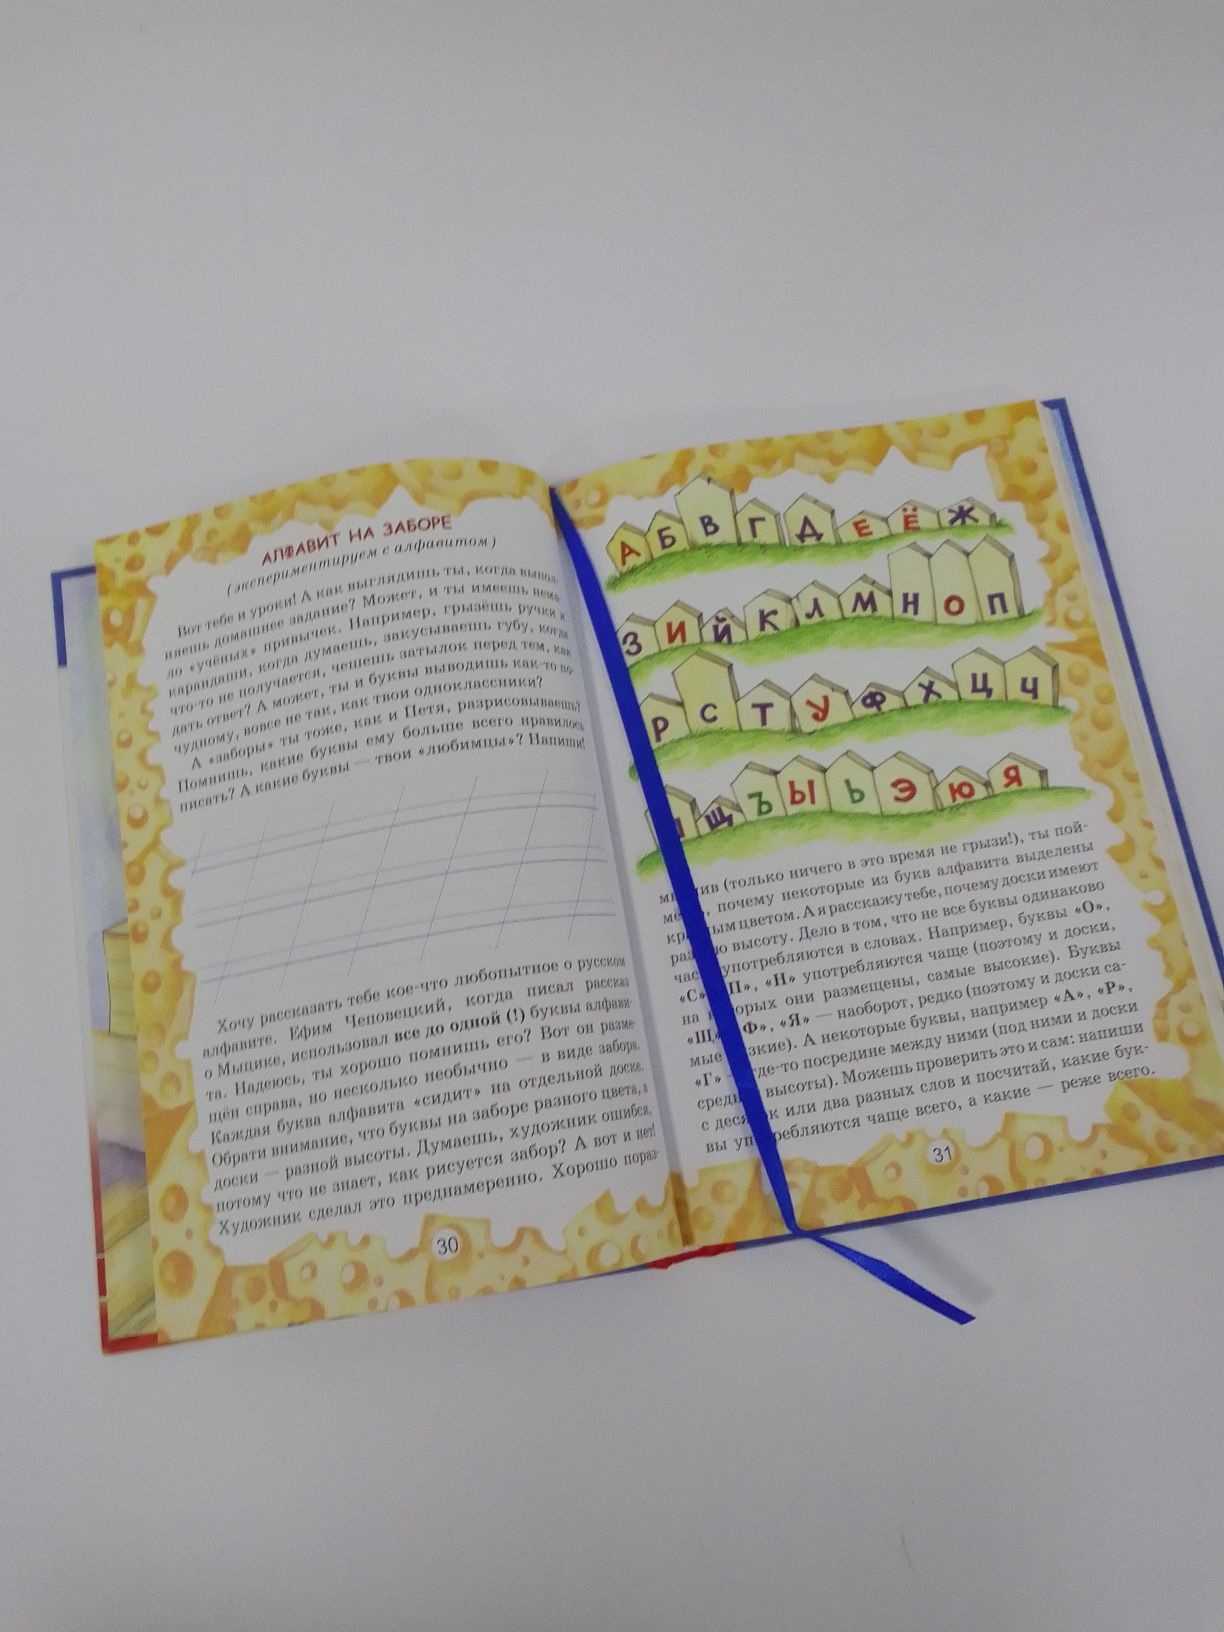 АЛФАВИТ НА ЗАБОРЕ
(экспериментируем с алфавитом)
Вот тебе и уроки! А как выглядишь ты, когда выпол-
няешь домашнее задание? Может, и ты имеешь нема-
ло «учёных» привычек. Например, грызёшь ручки и
карандаши, когда думаешь, закусываешь губу, когда
что-то не получается, чешешь затылок перед тем, как
дать ответ? А может, ты и буквы выводишь как-то по-
чудному, вовсе не так, как твои одноклассники?
А «заборы» ты тоже, как и Петя, разрисовываешь?
Помнишь, какие буквы ему больше всего нравилось
писать? А какие буквы — твои «любимцы»? Напиши!
Хочу рассказать тебе кое-что любопытное о русском
алфавите. Ефим Чеповецкий, когда писал рассказ
о Мыцике, использовал все до одной (!) буквы алфави-
та. Надеюсь, ты хорошо помнишь его? Вот он разме-
щён справа, но несколько необычно — в виде забора.
Каждая буква алфавита «сидит» на отдельной доске.
Обрати внимание, что буквы на заборе разного цвета, а
доски — разной высоты. Думаешь, художник ошибся,
потому что не знает, как рисуется забор? А вот и нет!
Художник сделал это преднамеренно. Хорошо пораз-
30
А Б В Г Д Е Ё Ж
З И Й К Л М Н О П
Р С Т У Ф Х Ц Ч
Щ Ъ Ы Ь Э Ю Я
(только ничего в это время не грызи!), ты пой-
почему некоторые из букв алфавита выделены
цветом. А я расскажу тебе, почему доски имеют
высоту. Дело в том, что не все буквы одинаково
употребляются в словах. Например, буквы «О»,
«С», «П», «Н» употребляются чаще (поэтому и доски,
на которых они размещены, самые высокие). Буквы
«Щ», «Ф», «Я» — наоборот, редко (поэтому и доски са-
мые низкие). А некоторые буквы, например «А», «Р»,
«Г» — где-то посредине между ними (под ними и доски
средней высоты). Можешь проверить это и сам: напиши
с десяток или два разных слов и посчитай, какие бук-
вы употребляются чаще всего, а какие — реже всего.
31